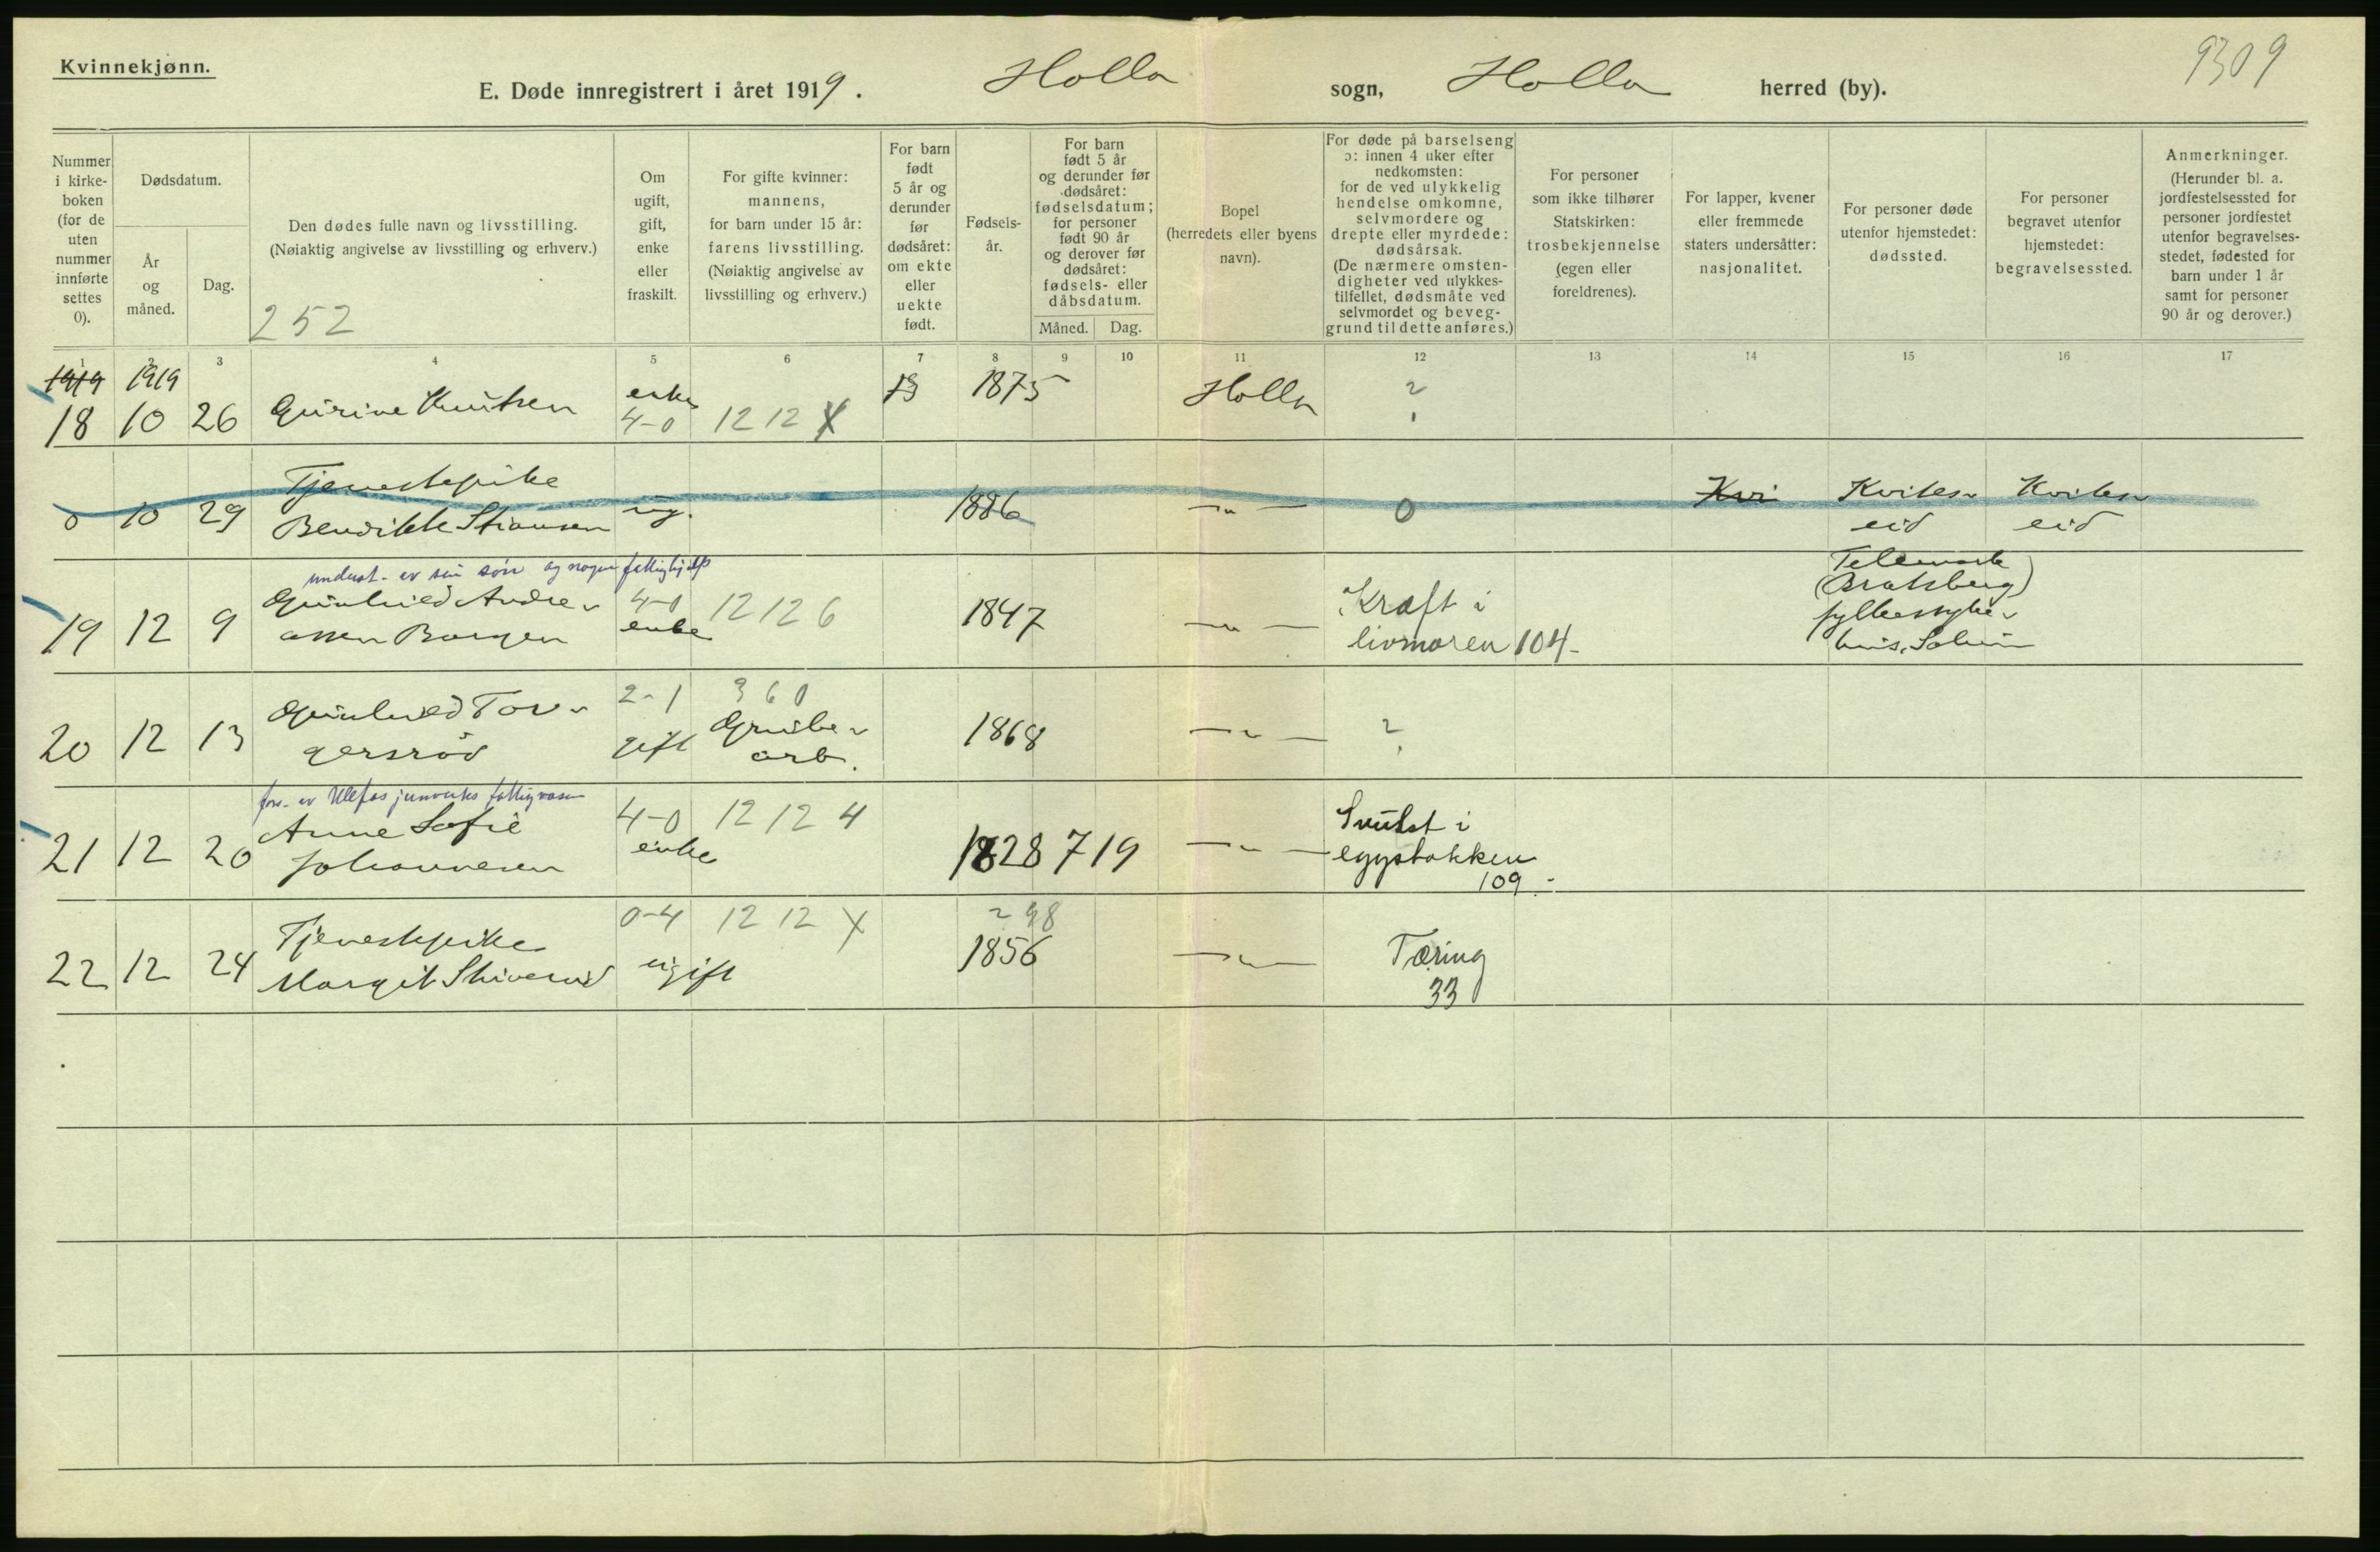 Kvinnekjønn.
9309
E. Døde innregistrert i året 1919. Holla sogn, Holla herred (by).
Nummer i kirke-
boken
(for de
uten
nummer
innførte
settes
0).
Dødsdatum.
År
og
måned.
Dag.
Den dødes fulle navn og livsstilling.
(Nøiaktig angivelse av livsstilling og erhverv.)
252
Om
ugift,
gift,
enke
eller
fraskilt.
For gifte kvinner:
mannens,
for barn under 15 år:
farens livsstilling.
(Nøiaktig angivelse av
livsstilling og erhverv.)
For barn
født
5 år og
derunder
før
dødsåret:
om ekte
eller
uekte
født.
Fødsels-
år.
For barn
født 5 år
og derunder før
dødsåret:
fødselsdatum;
for personer
født 90 år
og derover før
dødsåret:
fødsels- eller
dåbsdatum.
Måned. Dag.
Bopel
(herredets eller byens
navn).
For døde på barselseng
ɔ: innen 4 uker efter
nedkomsten:
for de ved ulykkelig
hendelse omkomne,
selvmordere og
drepte eller myrdede:
dødsårsak.
(De nærmere omsten-
digheter ved ulykkes-
tilfellet, dødsmåte ved
selvmordet og beveg-
grund til dette anføres.)
For personer
som ikke tilhører
Statskirken:
trosbekjennelse
(egen eller
foreldrenes).
For lapper, kvener
eller fremmede
staters undersåtter:
nasjonalitet.
For personer døde
utenfor hjemstedet:
dødssted.
For personer
begravet utenfor
hjemstedet:
begravelsessted.
Anmerkninger.
(Herunder bl. a.
jordfestelsessted for
personer jordfestet
utenfor begravelses-
stedet, fødested for
barn under 1 år
samt for personer
90 år og derover.)
1 2 3 4 5 6 7 8 9 10 11 12 13 14 15 16 17
1919 1919 enke 1875 Holla ?
18 10 26 Gurine Knutsen 4-0 12 12 X
Tjenestepike
0 10 29 ug. 1886 — " — 0 Kvi Kvites- Kvites-
Bendikte eid eid
underst. av sin søn og nogen fattighjelp
Gunhild Andre- 4-0 12 12 6 1847 Kræft i Telemark
19 12 9 assen Borgen enke — " — livmoren 104 - (Bratsberg)
fylkessyke-
hus, Solum
Gunhild Tor- 2-1 3 6 0
20 12 13 gersrød gift Grube- 1868 — " — ?
arb.
fors. av Ulefos jernverks fattigvæsen
Anne Sofie 4-0 12 12 4 Svulst i
21 12 20 Johannesen enke 1828 7 19 — " — eggstokken
109 -
Tjenestepike 0-4 12 12 X 2 98
22 12 24 Margit ugift 1856 — " — Tæring
33